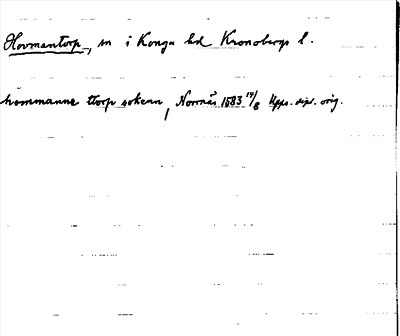 Hovmantorp, sn i Konga hd Kronobergs l.
hommanne ttorp sokenn, Norrnäs 1583 17/8 Upps. dipl. orig.